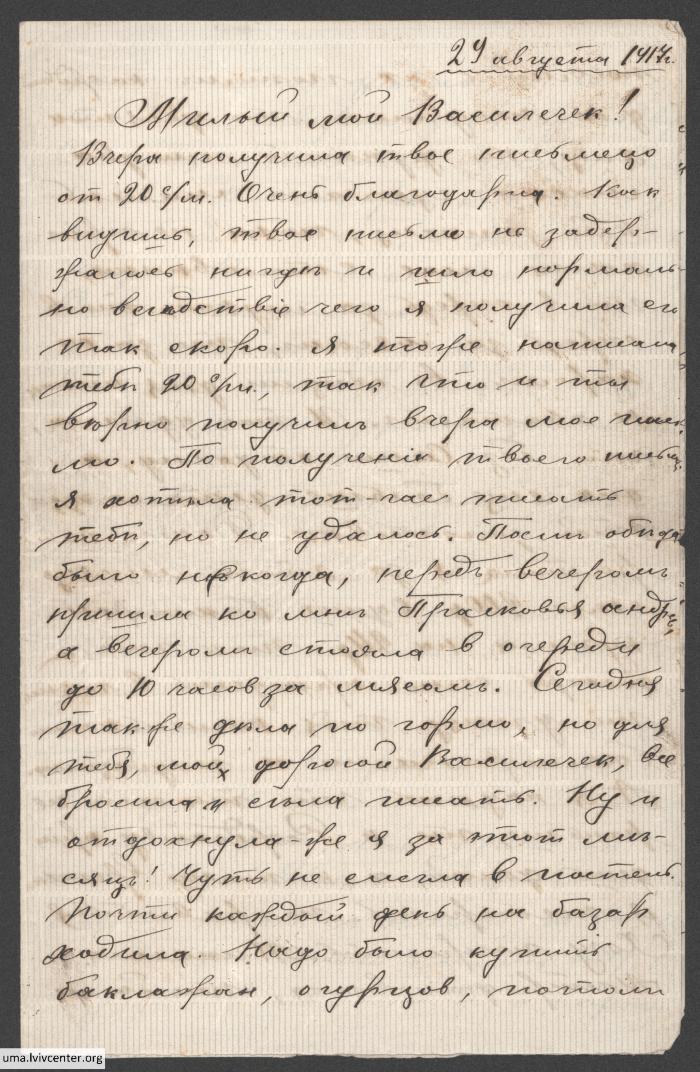 29 августа 1917г.
Милый мой Василечек!
Вчера получила твое письмецо
от 20 с/м. Очень благодарна. Как
видишь, твое письмо не задер-
жалось нигдѣ и шло нормаль-
но вслѣдствіе чего я получила его
так скоро. Я тоже написала
тебѣ 20 с/м., так что и ты
вѣрно получил вчера мое пись-
мо. По полученіи твоего письма
я хотѣла тот-час писать
тебѣ, но не удалось. Послѣ обѣда
было некогда, передъ вечеромъ
пришла ко мнѣ Прасковья Андр.,
а вечеромъ стояла в очереди
до 10 часов за мясомъ. Сегодня
также дѣла по горло, но для
тебя, мой дорогой Василечек, все
бросила и сѣла писать. Ну и
отдохнула-же я за этот мѣ-
сяц! Чуть не слегла в постель.
Почти каждый день на базар
ходила. Надо было купить
баклажан, огурцов, потом
uma.lvivcenter.org